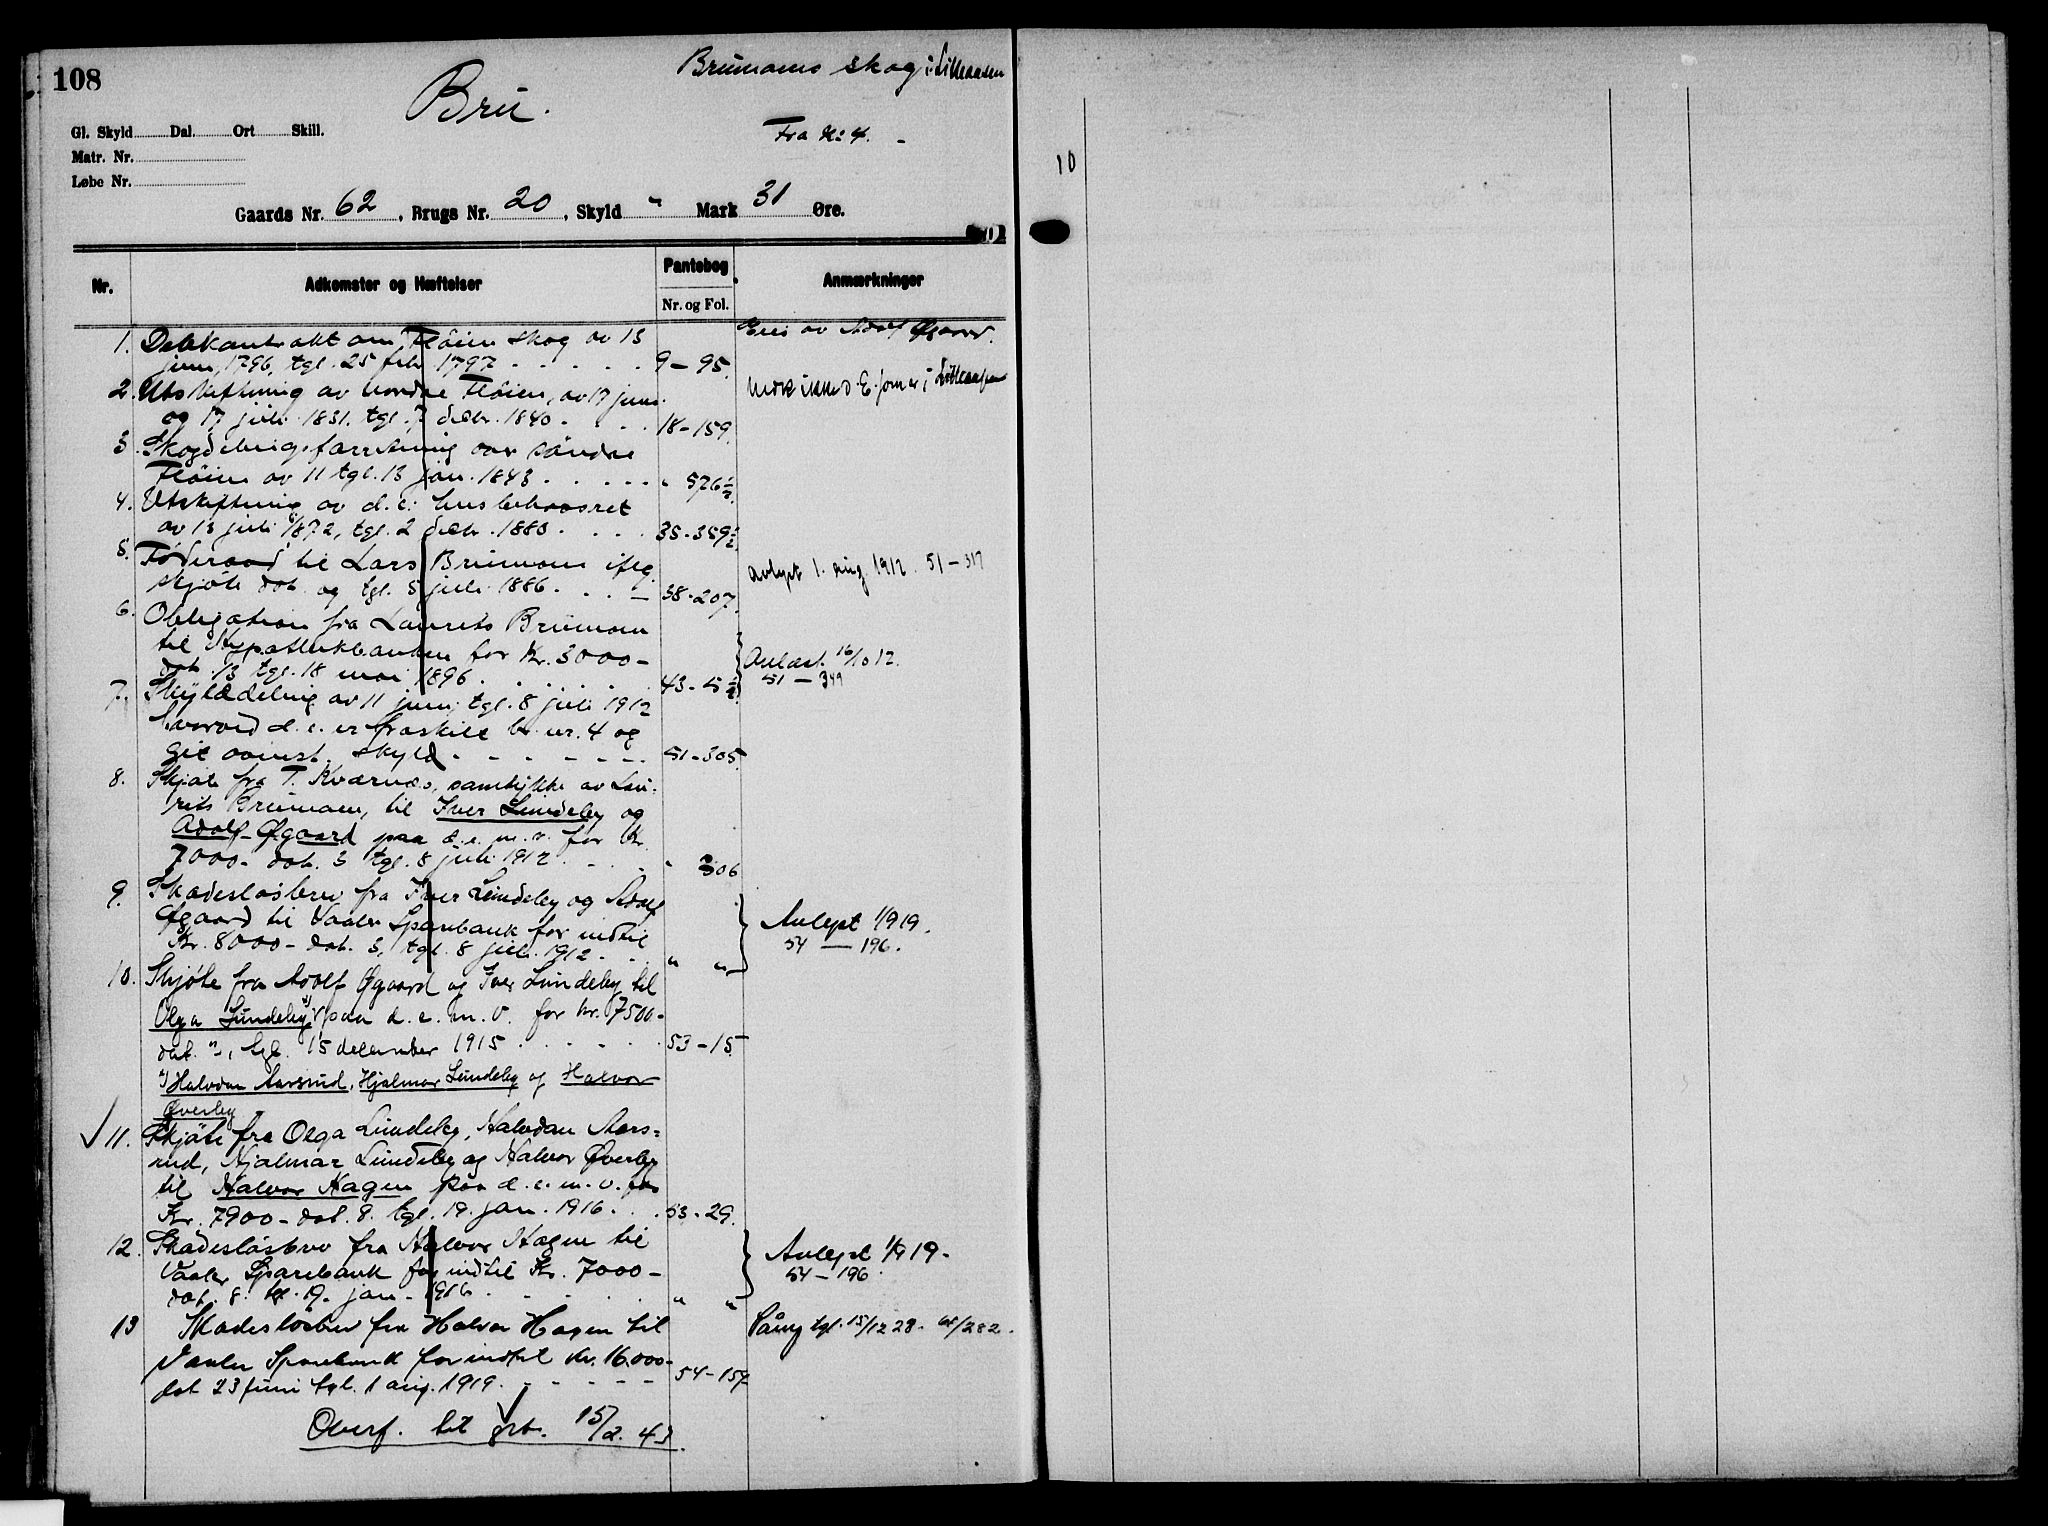 108
Brumoens skog i Lilleaasen
Bru.
Gl. Skyld Dal. Ort Skill.
Fra No 4. -
Matr. Nr.
Løbe Nr.
10
Gaards Nr. 62, Brugs Nr. 20, Skyld " Mark 31 Øre.
Nr. Adkomster og Hæftelser Pantebog Anmærkninger
Nr. og Fol.
Eies av Adolf Øgaard.
1. Delekontrakt om Fløien skog av 13
juni 1796, tgl. 25 febr 1797 . . . . . 9-95.
2. Utskiftning av nordre Fløien, av 17 juni
og 17 juli 1831. tgl. 7 decbr. 1840 . . . 18-159.
3. Skogdelingsforretning over søndre
Fløien av 11 tgl. 13 jan. 1843 . . . . . " 576½.
4. Utskiftning av d. e. husbehovsret
av 13 juli 1872, tgl. 2 decbr. 1880 . . . . 35-359½
5. Føderaad til Lars Brumoen iflg.
skjøte dat. og tgl. 5 juli 1886 . . . 38-207.
avlyst 1. aug. 1912. 51-317
6. Obligation fra Laurits Brumoen
til Hypothekbanken for Kr. 3000-
dat. 13 tgl. 18 mai 1896 . . . . . 43-5½
Avlæst 16/10 12.
51-349
7. Skylddeling av 11 juni, tgl. 8 juli 1912
hvorved d. e. er fraskilt br. nr. 4 og
git ovenst. skyld . . . . . . . 51-305.
8. Skjøte fra T. Kværnæs, samtykke av Lau-
rits Brumoen, til Iver Lundeby og
Adolf Øgaard paa d. e. m. v. for Kr.
7000- dat. 3 tgl. 8 juli 1912 . . . . " 306
9. Skadesløsbrev fra Iver Lundeby og Adolf
Øgaard til Vaaler Sparebank for indtil
Kr. 8000- dat. 3, tgl. 8 juli 1912 . . . " "
Avlyst 1/9 19.
54-196.
10. Skjøte fra Adolf Øgaard og Iver Lundeby til
Olga Lundeby paa d. e. m. v. for kr. 7500.-
dat. ", tgl. 15 december 1915 . . . . . . 53-15.
Halvdan Aarsrud, Hjalmar Lundeby og Halvor
Øverby
11. Skjøte fra Olga Lundeby, Halvdan Aars-
rud, Hjalmar Lundeby og Halvor Øverby
til Halvor Hagen paa d. e. m. v. for
Kr. 7900- dat. 8. tgl. 19. jan. 1916 . . . 53-29.
12. Skadesløsbrev fra Halvor Hagen til
Vaaler Sparebank for indtil Kr. 7000-
dat. 8. tgl. 19. jan. 1916 . . . . . " "
Avlyst 1/9 19-
54-196.
13 Skadesløsbrev fra Halvor Hagen til
Vaaler Sparebank for indtil Kr. 16.000-
dat 23 juni tgl. 1 aug. 1919 . . . . . 54-157
tgl. 15/12 28.
Overf. til grb. 15/2. 43.